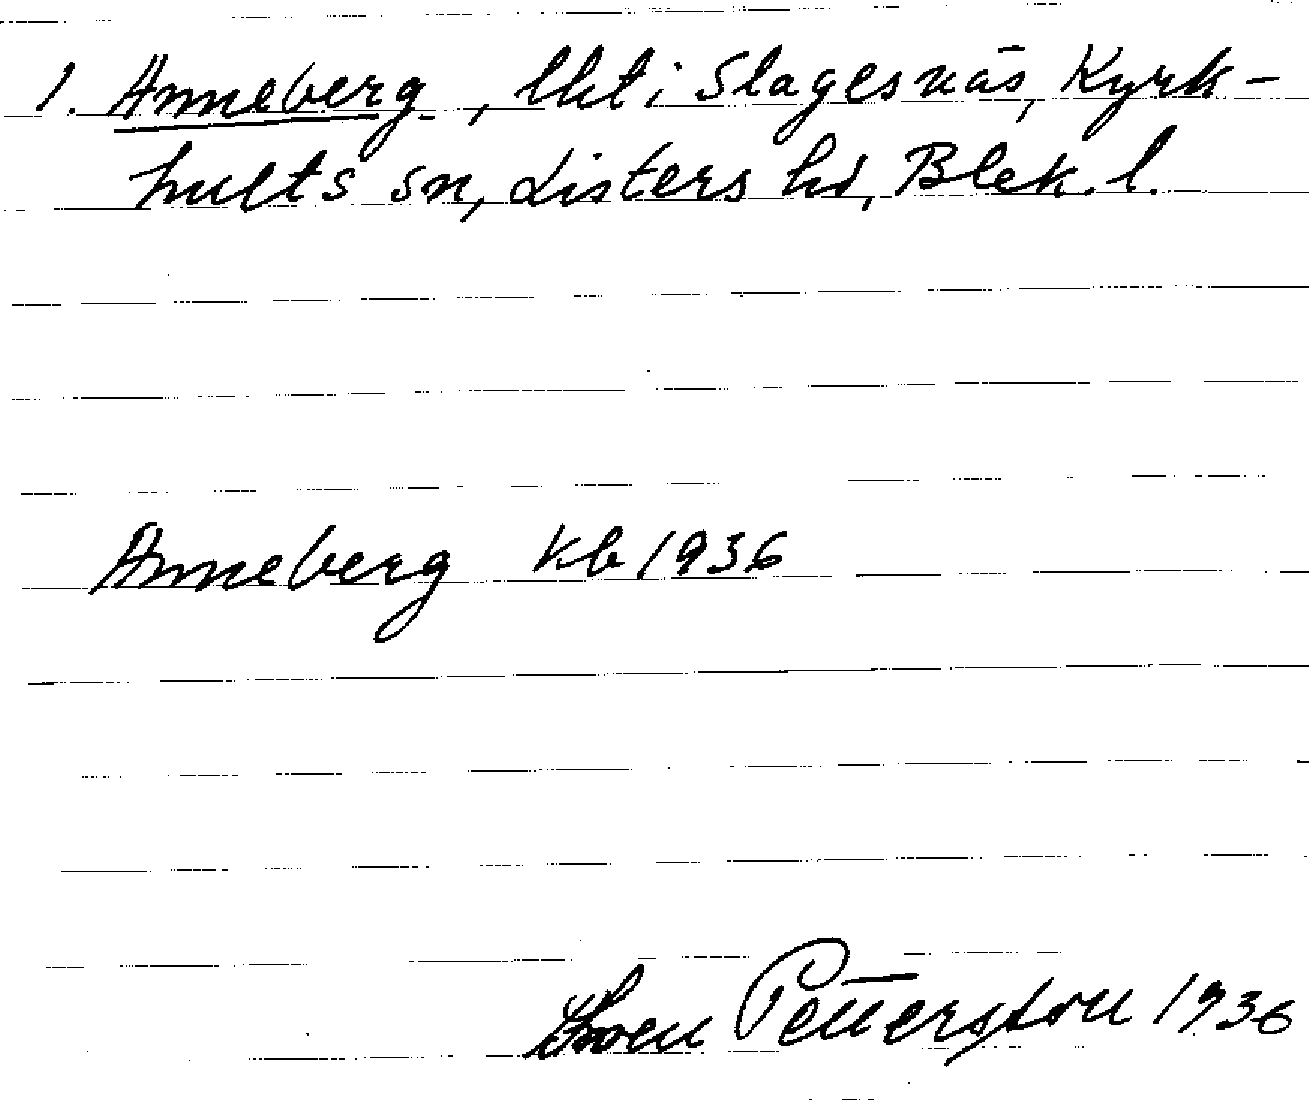 1. Anneberg, lht i Slagesnäs, Kyrk-
hults sn, Listers hd, Blek. l.
Anneberg kb 1936
Sven Petterson 1936